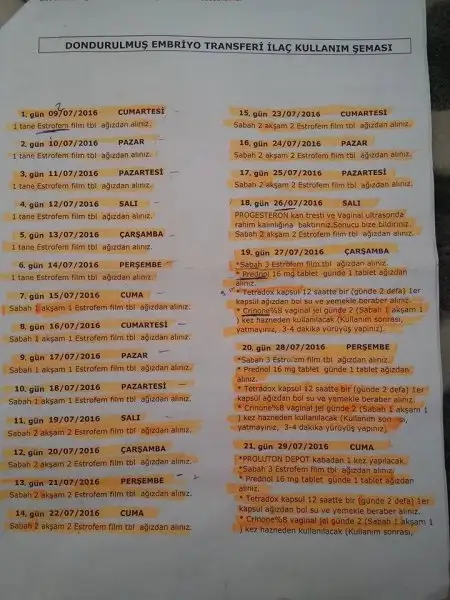 DONDURULMUŞ EMBRİYO TRANSFERİ İLAÇ KULLANIM ŞEMASI
1. gün 09/07/2016 CUMARTESİ
1 tane Estrofem film tbl ağızdan alınız.
2. gün 10/07/2016 PAZAR
1 tane Estrofem film tbl ağızdan alınız.
3. gün 11/07/2016 PAZARTESİ
1 tane Estrofem film tbl ağızdan alınız.
4. gün 12/07/2016 SALI
1 tane Estrofem film tbl ağızdan alınız.
5. gün 13/07/2016 ÇARŞAMBA
1 tane Estrofem film tbl ağızdan alınız.
6. gün 14/07/2016 PERŞEMBE
1 tane Estrofem film tbl ağızdan alınız.
7. gün 15/07/2016 CUMA
Sabah 1 akşam 1 Estrofem film tbl ağızdan alınız.
8. gün 16/07/2016 CUMARTESİ
Sabah 1 akşam 1 Estrofem film tbl ağızdan alınız.
9. gün 17/07/2016 PAZAR
Sabah 1 akşam 1 Estrofem film tbl ağızdan alınız.
10. gün 18/07/2016 PAZARTESİ
Sabah 1 akşam 1 Estrofem film tbl ağızdan alınız.
11. gün 19/07/2016 SALI
Sabah 2 akşam 2 Estrofem film tbl ağızdan alınız.
12. gün 20/07/2016 ÇARŞAMBA
Sabah 2 akşam 2 Estrofem film tbl ağızdan alınız.
13. gün 21/07/2016 PERŞEMBE
Sabah 2 akşam 2 Estrofem film tbl ağızdan alınız.
14. gün 22/07/2016 CUMA
Sabah 2 akşam 2 Estrofem film tbl ağızdan alınız.
15. gün 23/07/2016 CUMARTESİ
Sabah 2 akşam 2 Estrofem film tbl ağızdan alınız.
16. gün 24/07/2016 PAZAR
Sabah 2 akşam 2 Estrofem film tbl ağızdan alınız.
17. gün 25/07/2016 PAZARTESİ
Sabah 2 akşam 2 Estrofem film tbl ağızdan alınız.
18. gün 26/07/2016 SALI
PROGESTERON kan tresti ve Vaginal ultrasonda
rahim kalınlığına baktırınız.Sonucu bize bildiriniz.
Sabah 2 akşam 2 Estrofem film tbl ağızdan alınız.
19. gün 27/07/2016 ÇARŞAMBA
*Sabah 3 Estrofem film tbl ağızdan alınız.
* Prednol 16 mg tablet günde 1 tablet ağızdan
alınız.
* Tetradox kapsul 12 saatte bir (günde 2 defa) 1er
kapsül ağızdan bol su ve yemekle beraber alınız.
* Crinone%8 vaginal jel günde 2 (Sabah 1 akşam 1
) kez hazneden kullanılacak (Kullanım sonrası,
yatmayınız, 3-4 dakika yürüyüş yapınız).
20. gün 28/07/2016 PERŞEMBE
*Sabah 3 Estrofem film tbl ağızdan alınız.
* Prednol 16 mg tablet günde 1 tablet ağızdan
alınız.
* Tetradox kapsul 12 saatte bir (günde 2 defa) 1er
kapsül ağızdan bol su ve yemekle beraber alınız.
* Crinone%8 vaginal jel günde 2 (Sabah 1 akşam 1
) kez hazneden kullanılacak (Kullanım
yatmayınız, 3-4 dakika yürüyüş yapınız)
21. gün 29/07/2016 CUMA
*PROLUTON DEPOT kabadan 1 kez yapılacak.
*Sabah 3 Estrofem film tbl ağızdan alınız.
* Prednol 16 mg tablet günde 1 tablet ağızdan
alınız.
* Tetradox kapsul 12 saatte bir (günde 2 defa) 1er
kapsül ağızdan bol su ve yemekle beraber alınız.
* Crinone%8 vaginal jel günde 2 (Sabah 1 akşam 1
) kez hazneden kullanılacak (Kullanım sonrası,